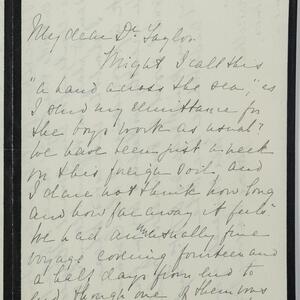 My dear Dr. Taylor
Might I call this
"a hand across the sea," as
I send my remittance for
the boys work as usual?
We have been just a week
on this foreign soil, and
I dare not think how long
and how far away it feels.
We had an unusually fine
voyage covering fourteen and
a half days from end to
end, though one of them was